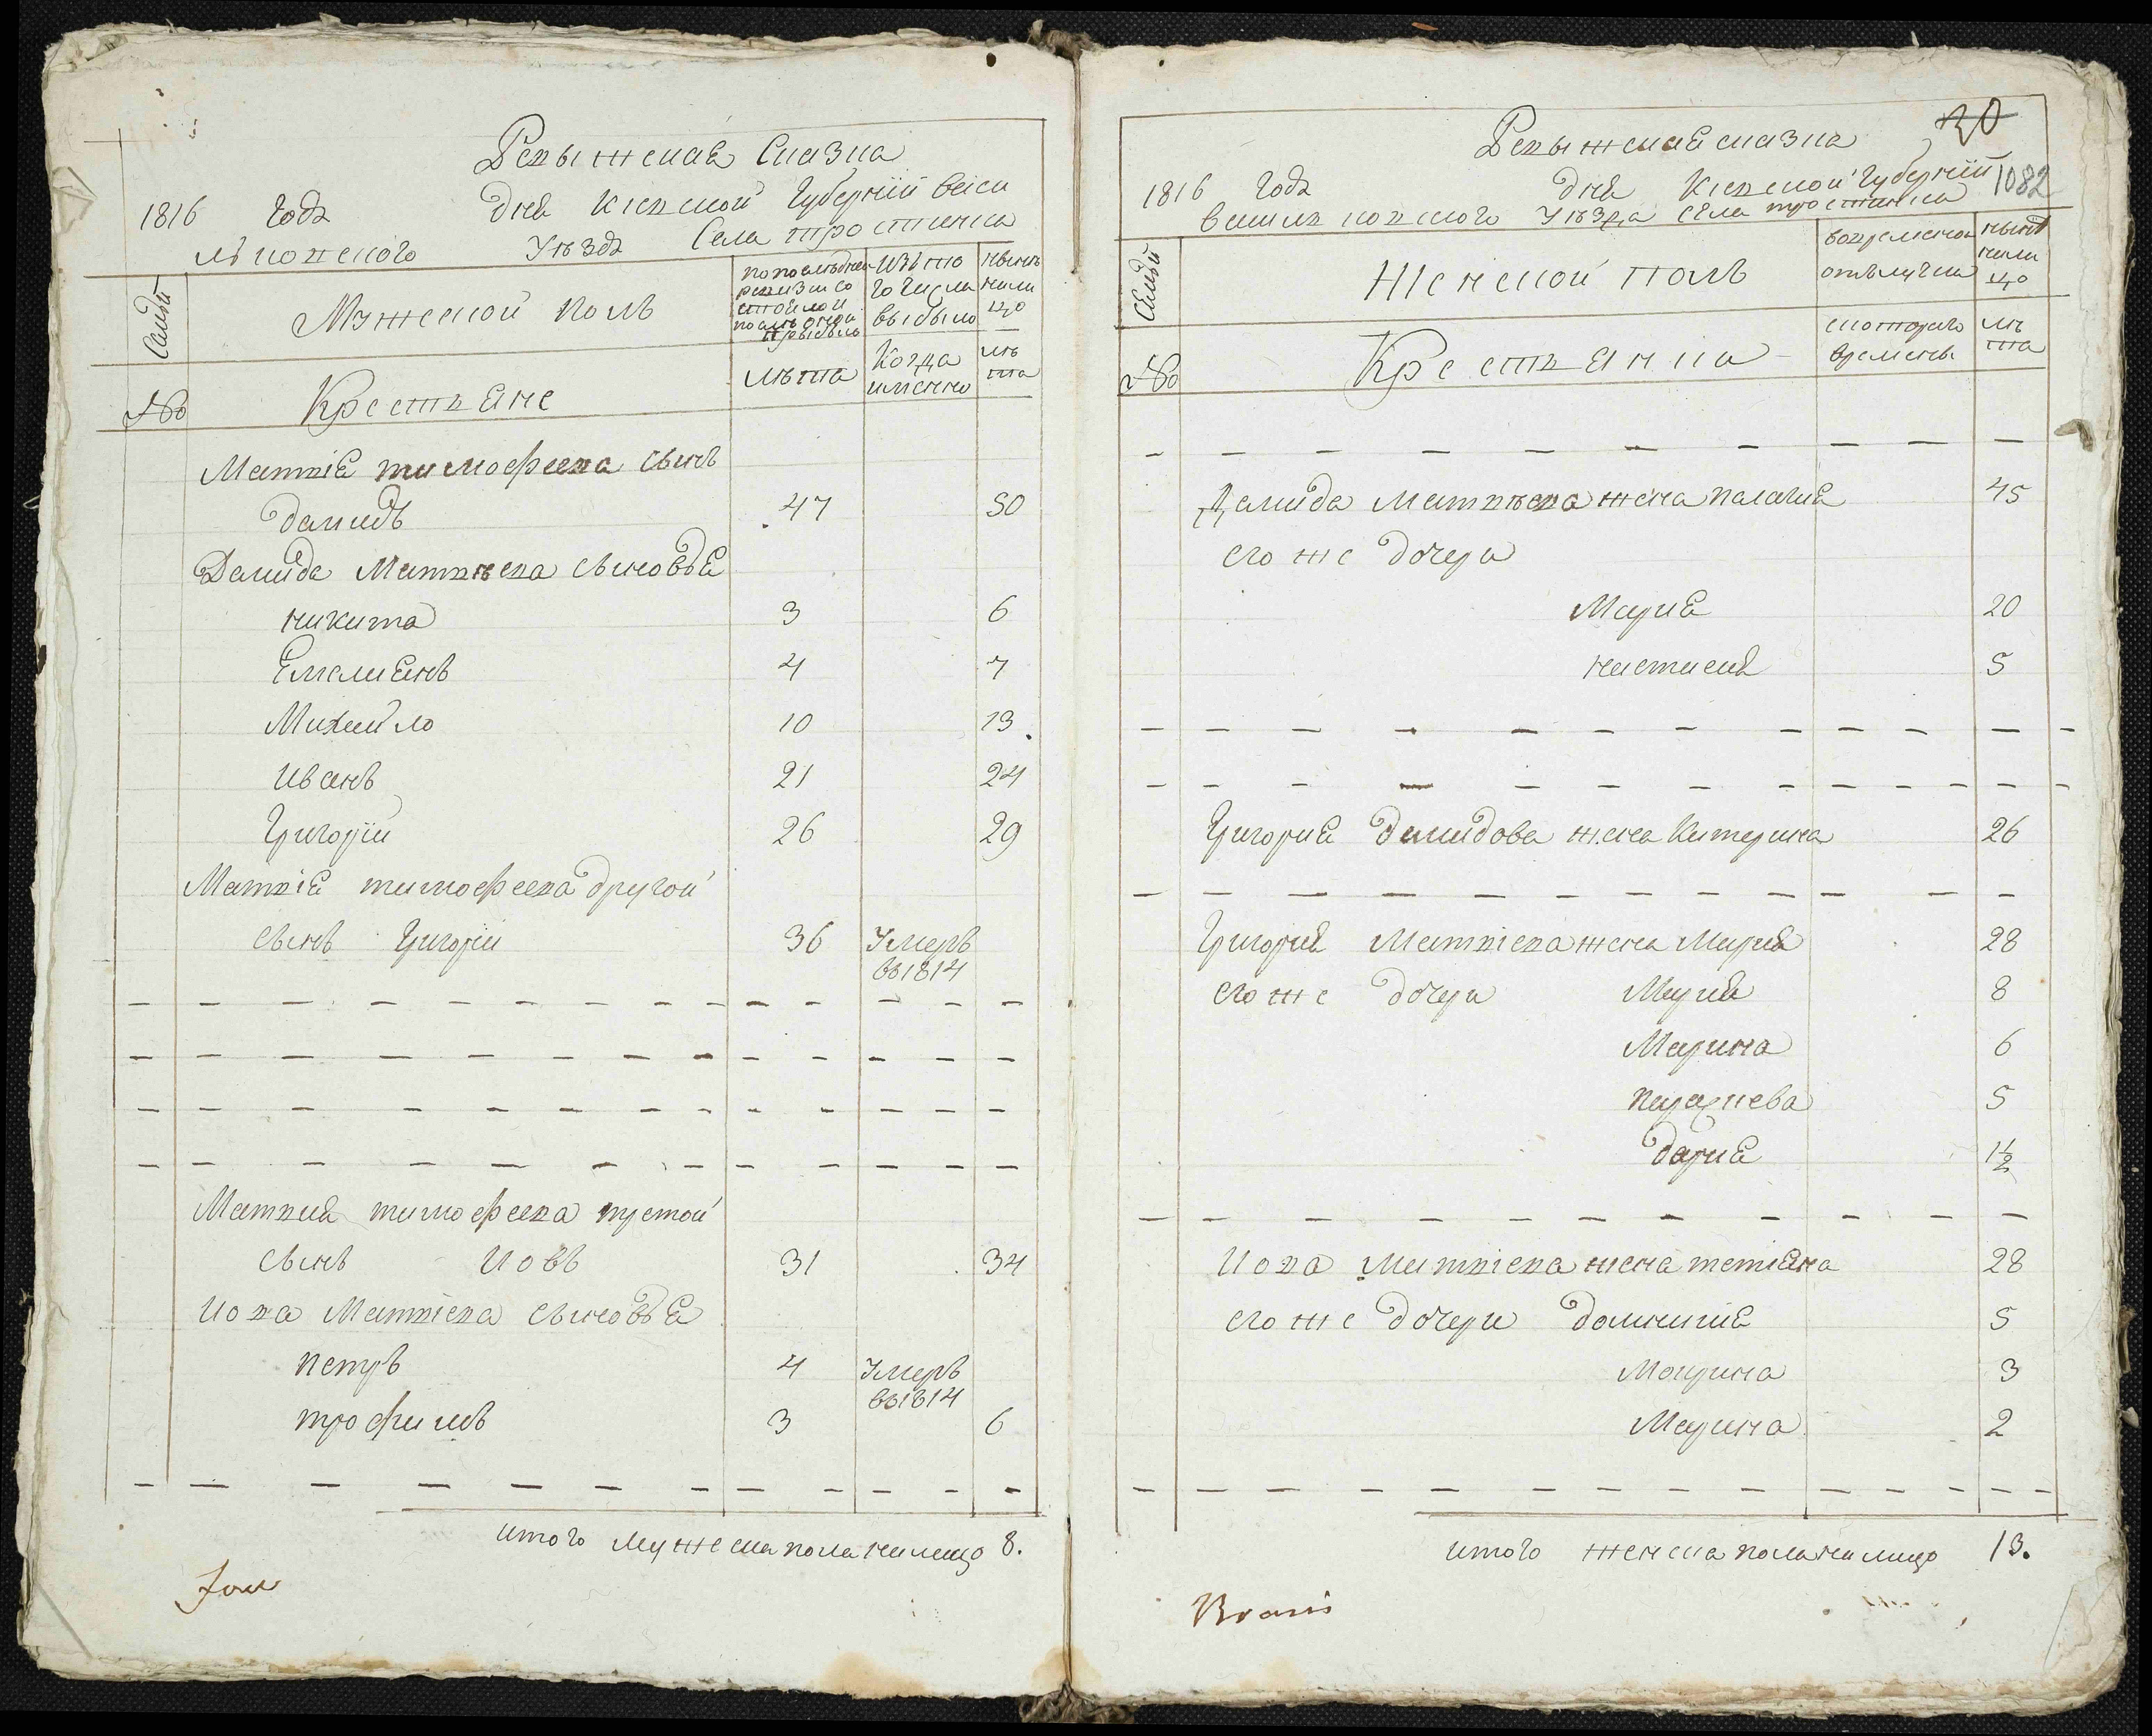 Ревыжская Сказка
1816 Годъ дня Кіевской Губерніи Васи
льковского Уѣзда Села тростинка
Семьи
Мужеской полъ
по последней
ревизіи со
стояло и
послѣ оной
прибыло
Изъ то
го числа
выбыло
нынѣ
нали
цо
№
Крестьяне
лѣта
Когда
именно
лѣ
та
Матвія тимофеева сынъ
демидъ 47 50
Демида Матвѣева сыновья
никита 3 6
Емелиянъ 4 7
Михайло 10 13
Иванъ 21 24
Григорій 26 29
Матвія тимофеева другой
сынъ Григорій 36 Умеръ
въ 1814
Матвия тимофеева третой
сынъ Иовъ 31 34
Иова Матвіева сыновья
петръ 4 Умеръ
въ 1814
трофимъ 3 6
итого мужеска пола налицо 8.
30
Ревыжская сказка
1816 Годъ дня Кіевской Губерніи 1082
Васильковского Уѣзда Села тростинка
Семьи
Женской полъ
во временной
отлучки
нынѣ
нали
цо
№
Крестьянка
с которого
времены
лѣ
та
Демида Матвѣева жена палагия 45
его же дочери
Мария 20
настасия 5
Григория демидова жена Катерина 26
Григория Матвіева жена Мария 28
его же дочери Мария 8
Марина 6
параскева 5
дария 1½
Иова Матвіева жена тетияна 28
его же дочери домникия 5
Мокрина 3
Марина 2
итого женска пола налицо 13.